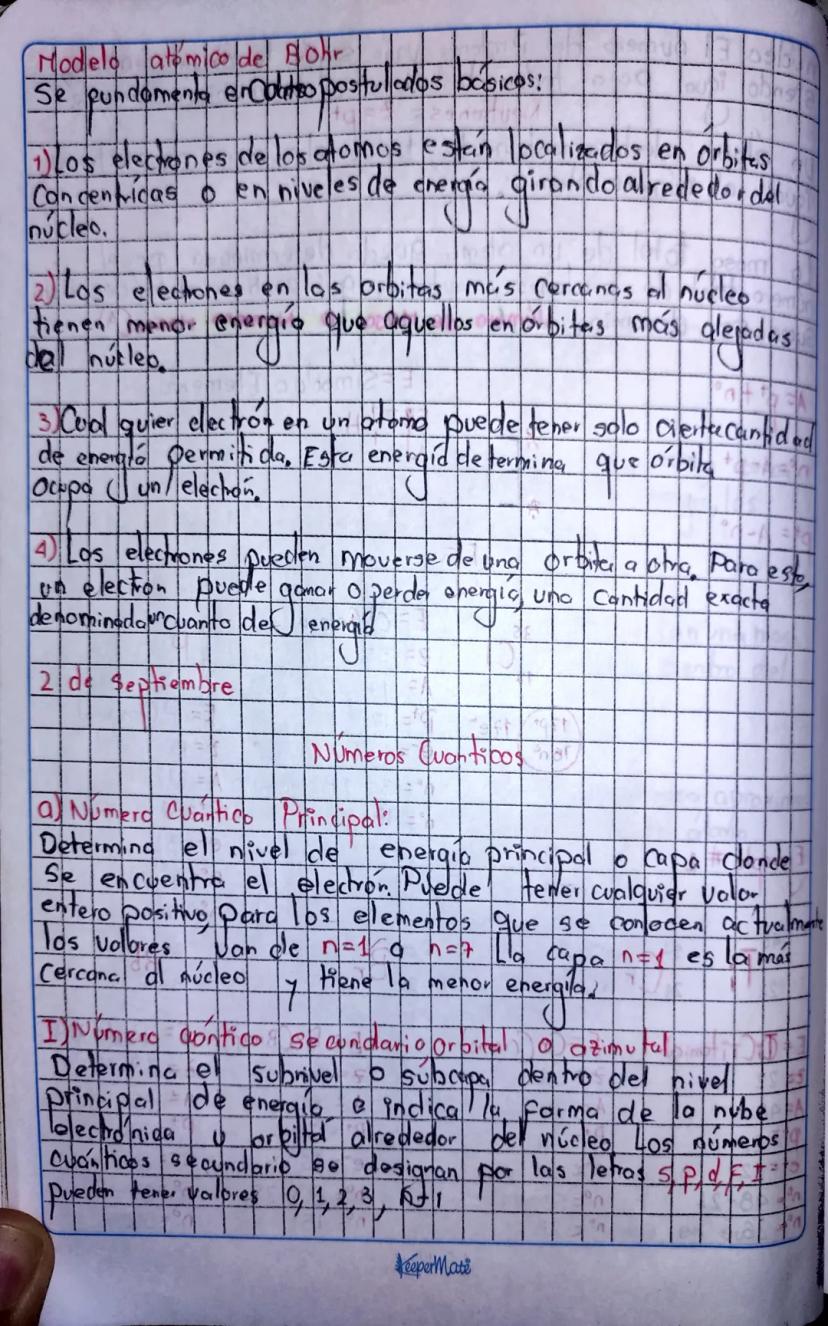 Modelo atómico de Bohr
Se fundamenta en cuatro postulados básicos:
1) Los electrones de los atomos están localizados en órbitas
concentricas o en niveles de energía girando alrededor del
núcleo.
2) Los electrones en las orbitas más cercanas al núcleo
tienen menor energía que aquellos en orbitas más alejadas
del núcleo.
3) Cual quier electrón en un atomo puede tener solo cierta cantidad
de energía permitida. Esta energía determina que órbita
ocupa un electrón.
4) Los electrones pueden moverse de una orbita a otra. Para esto,
un electron puede ganar o perder energía, una cantidad exacta
denominada un cuanto de energía
2 de septiembre
Números Cuanticos
a) Número Cuántico Principal:
Determina el nivel de energía principal o capa donde
se encuentra el electrón. Puede tener cualquier valor
entero positivo, para los elementos que se conocen actualmente
los valores van de n=1 a n=7 La capa n=1 es la más
cercana al núcleo y tiene la menor energía.
I) Número cuóntico secundario orbital o azimutal
Determina el subnivel o subcapa dentro del nivel
principal de energía e indica la forma de la nube
electrónida u orbital alrededor del núcleo Los números
cuánticos secundario se designan por las letras s, p, d, f, I
pueden tener valores 0, 1, 2, 3,
KeeperMate